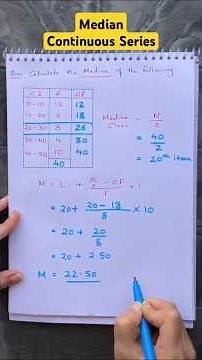 Median
Continuous Series
Que. Calculate the Median of the following
C.I F CF
0-10 12 12
10-20 6 18
20-30 8 26
30-40 4 30
40-50 10 40
40
Median Class = N/2
= 40/2
= 20th item
M = L1 + (N/2 - CF)/f × i
= 20 + (20-18)/8 × 10
= 20 + 20/8
= 20 + 2.50
M = 22.50